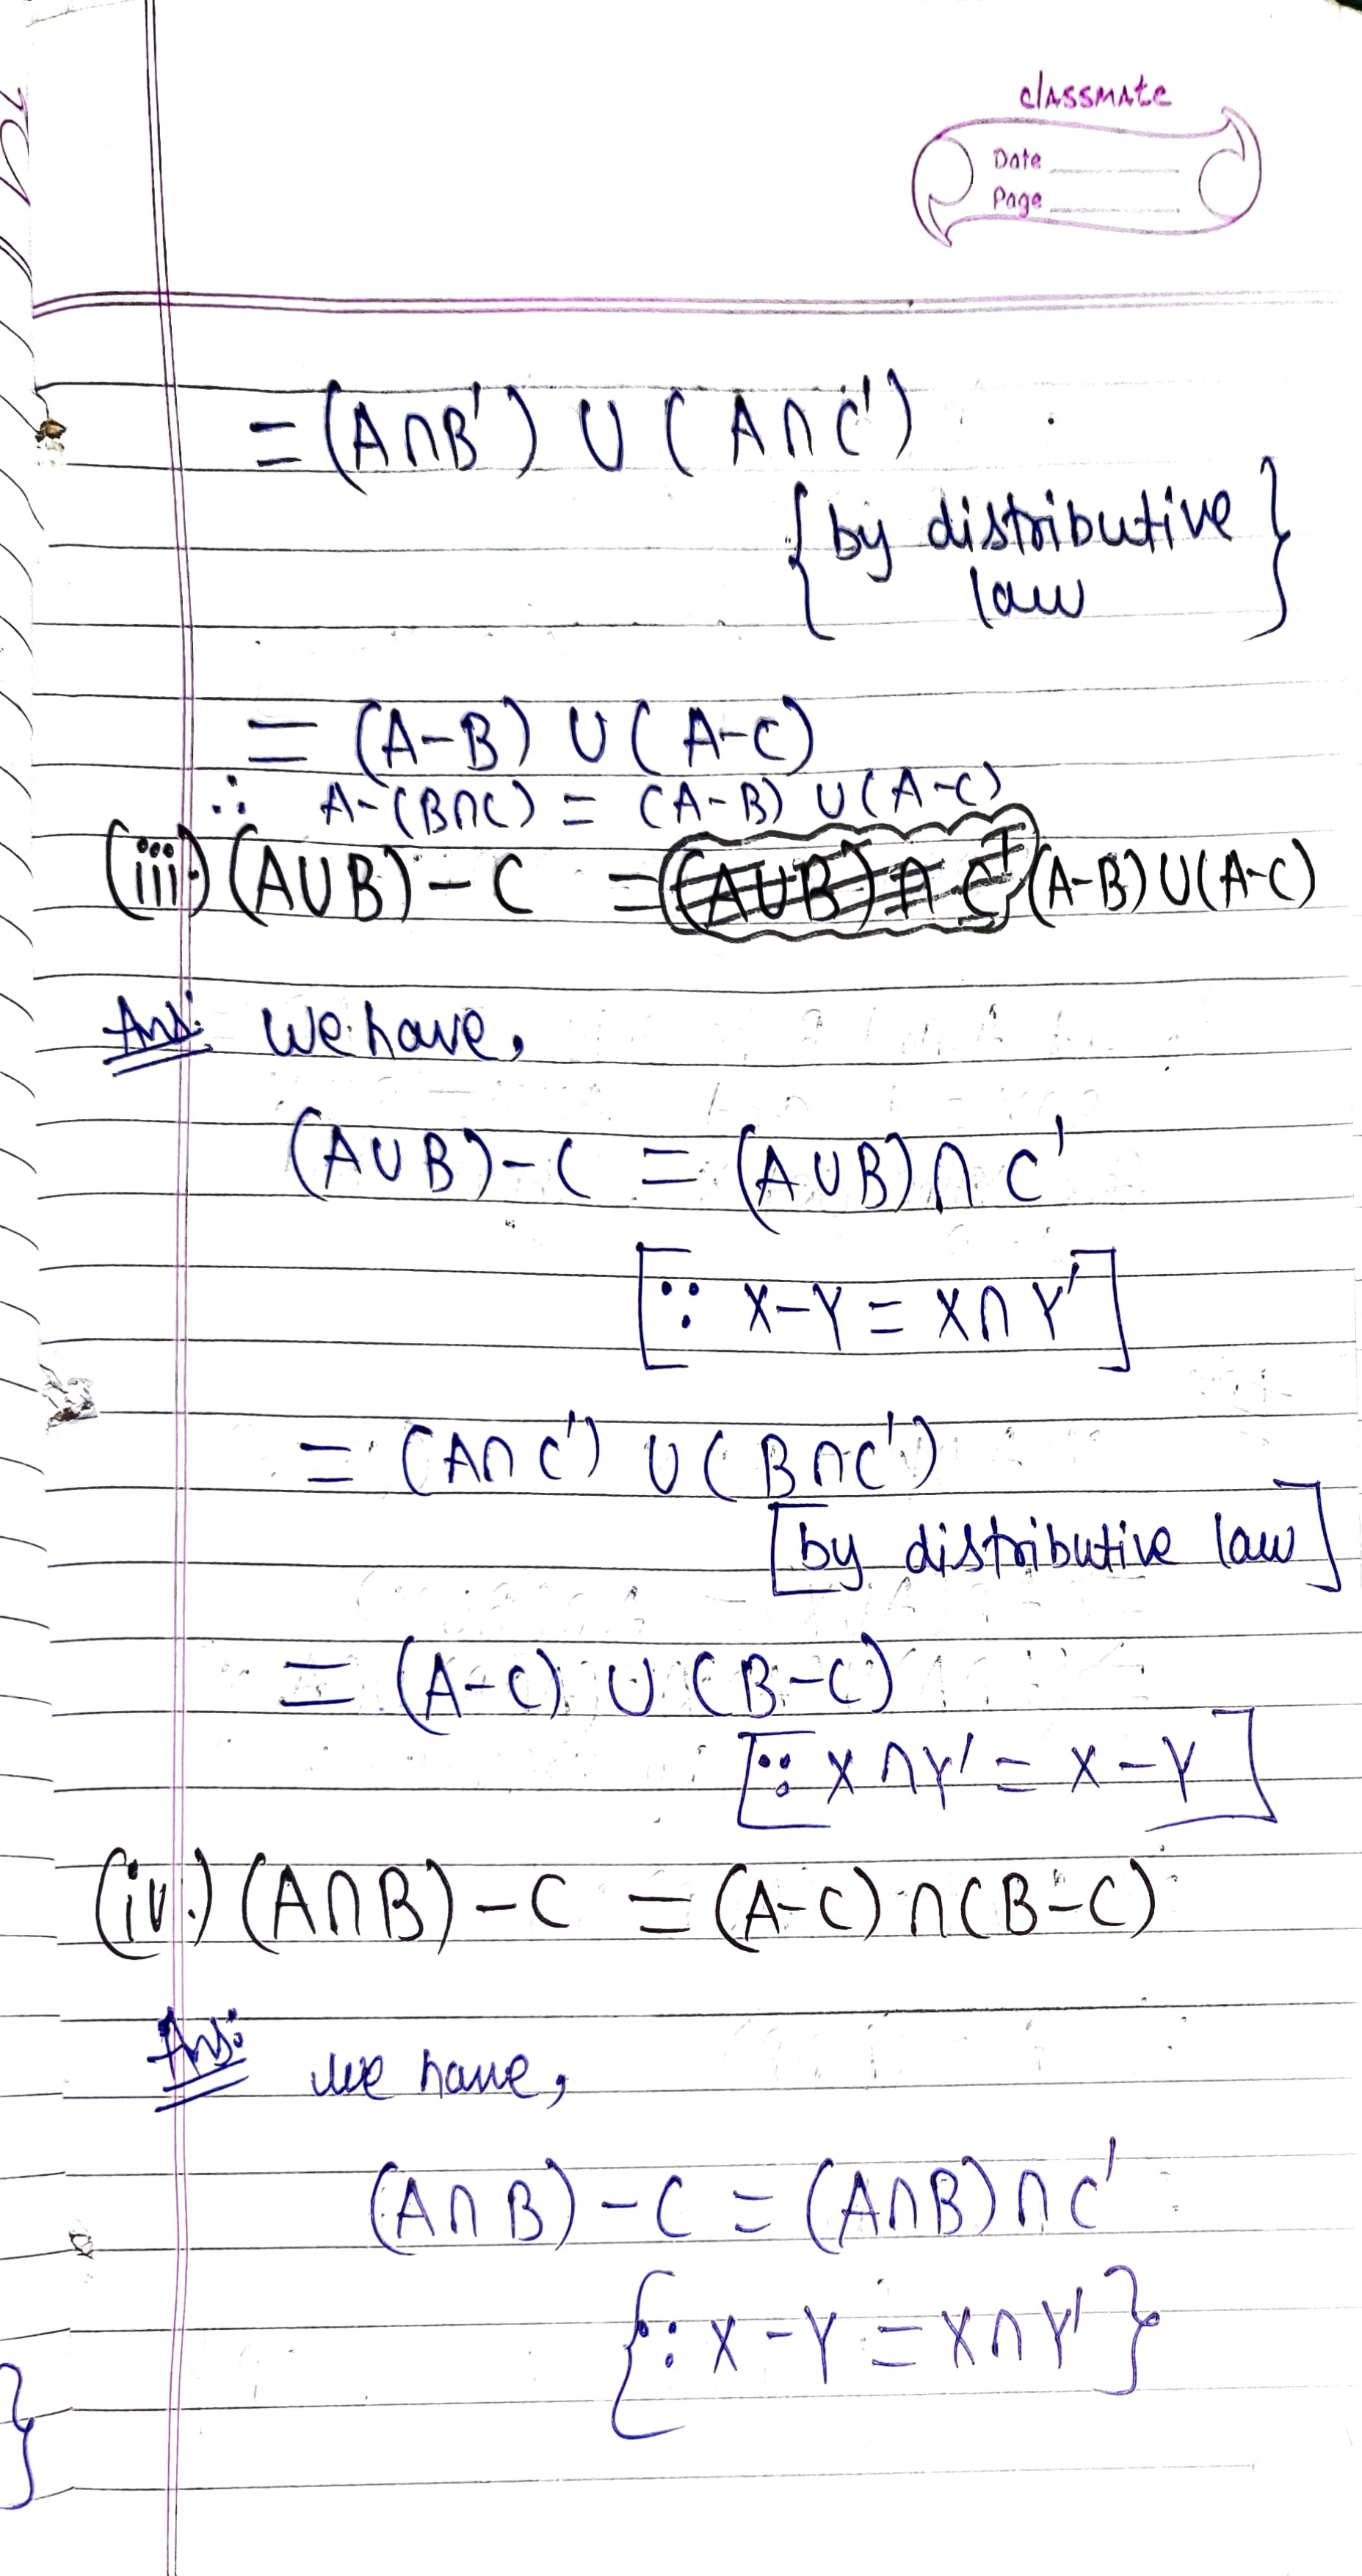 classmate
Date
Page
= (A∩B') ∪ (A∩C')
{by distributive
law}
= (A-B) ∪ (A-C)
∴ A-(B∩C) = (A-B) ∪ (A-C)
(iii) (A∪B) - C = (A-B) ∪ (A-C)
Ans: We have,
(A∪B) - C = (A∪B) ∩ C'
[∵ X-Y = X∩Y']
= (A∩C') ∪ (B∩C')
[by distributive law]
= (A-C) ∪ (B-C)
[∵ X∩Y' = X-Y]
(iv.) (A∩B) - C = (A-C) ∩ (B-C)
Ans:
we have,
(A∩B) - C = (A∩B) ∩ C'
{∵ X-Y = X∩Y'}
}